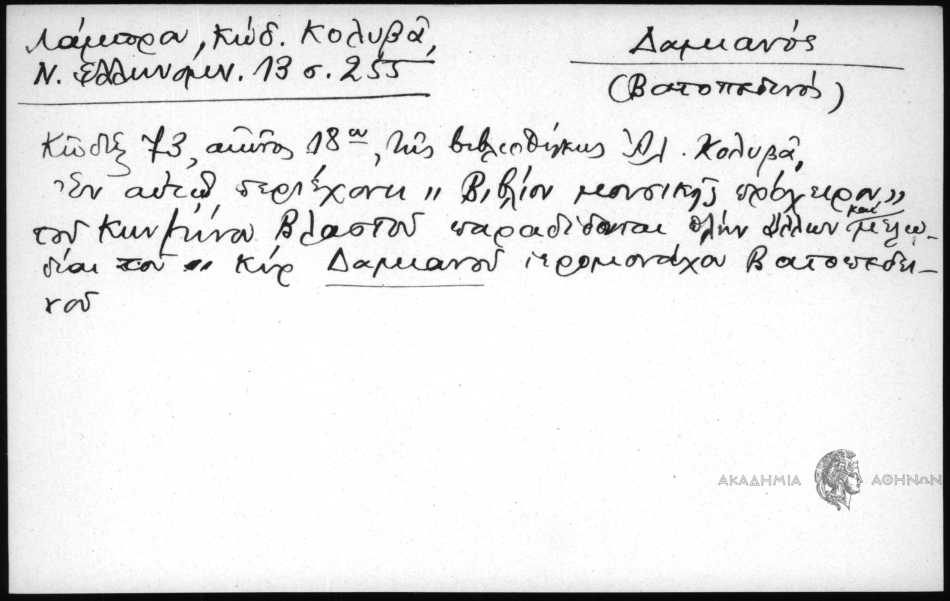 Λάμπρου, Κώδ. Κολυβᾶ,
Ν. Ἑλληνομν. 13 σ. 255
Δαμιανός
(Βατοπεδινός)
Κῶδιξ 73, αἰῶνος 18ου, τῆς βιβλιοθήκης Ἀλ. Κολυβᾶ,
Ἐν αὐτῷ περιέχοντι „Βιβλίον μουσικῆς πρόχειρον„
τοῦ Βλαστοῦ παραδίδονται πλὴν ἄλλων καὶ μελῳ-
δίαι τοῦ „ Κὺρ Δαμιανοῦ ἱερομονάχου Βατοπεδι-
νοῦ
ΑΚΑΔΗΜΙΑ ΑΘΗΝΩΝ